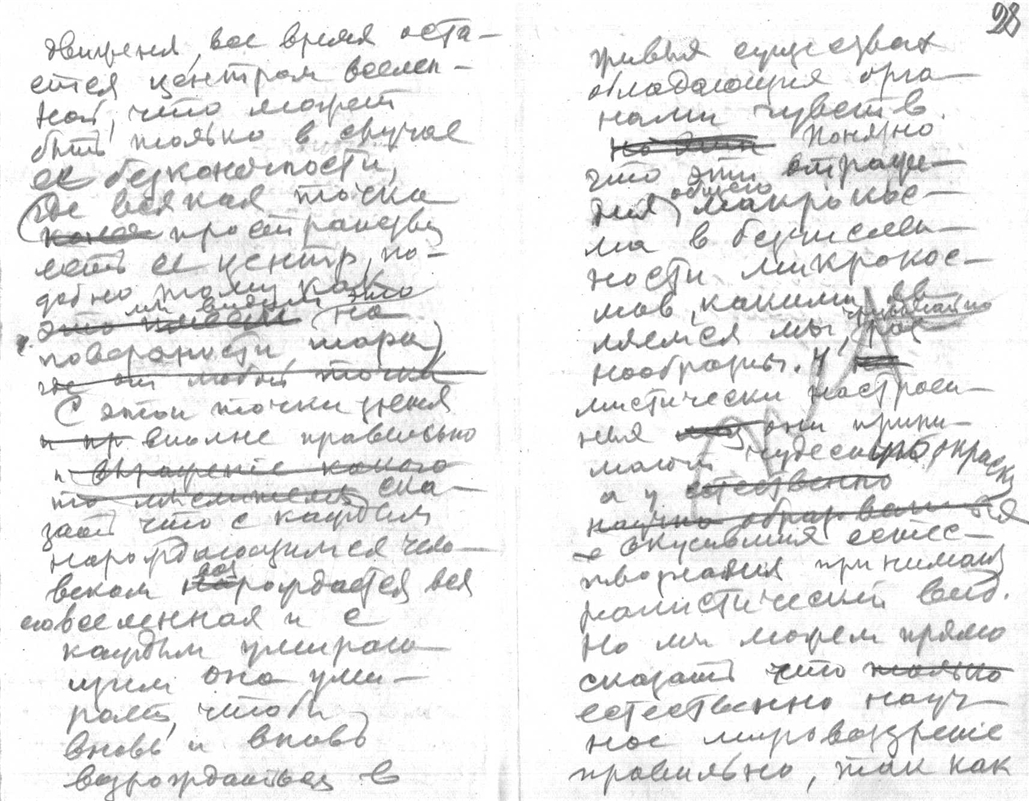 движеня, все время оста-
ется центром вселен-
ной, что может
быть только в случае
ее безконечности,
(где всякая точка
пространству
есть ее центр, по-
добно тому как
мы видим это
на
поверхности шара)
где он любой точки
С этой точки зреня
и пр вполне правильно
вращение какого
ска-
зать что с каждым
нарождающимся чело-
веком возрождается вся
вселенная и с
каждым умираю-
щим она уми-
рает, чтобы
вновь и вновь
возрождаться в
28
живых существах
обладающих орга-
нами чувств.
Понятно
что эти отраже-
ния общего макрокос-
ма в безчислен-
ности микрокос-
мов, какими яв-
ляемся мы, чрезвычайно раз
нообразны. У
мистически настроен-
ных они прини-
мают чудесную окраску
а у естественно
научно образованных
вкусивших естес-
твознания принимают
реалистический вид.
Но мы можем прямо
сказать что только
естественно науч-
ное мировоззрение
правильно, так как